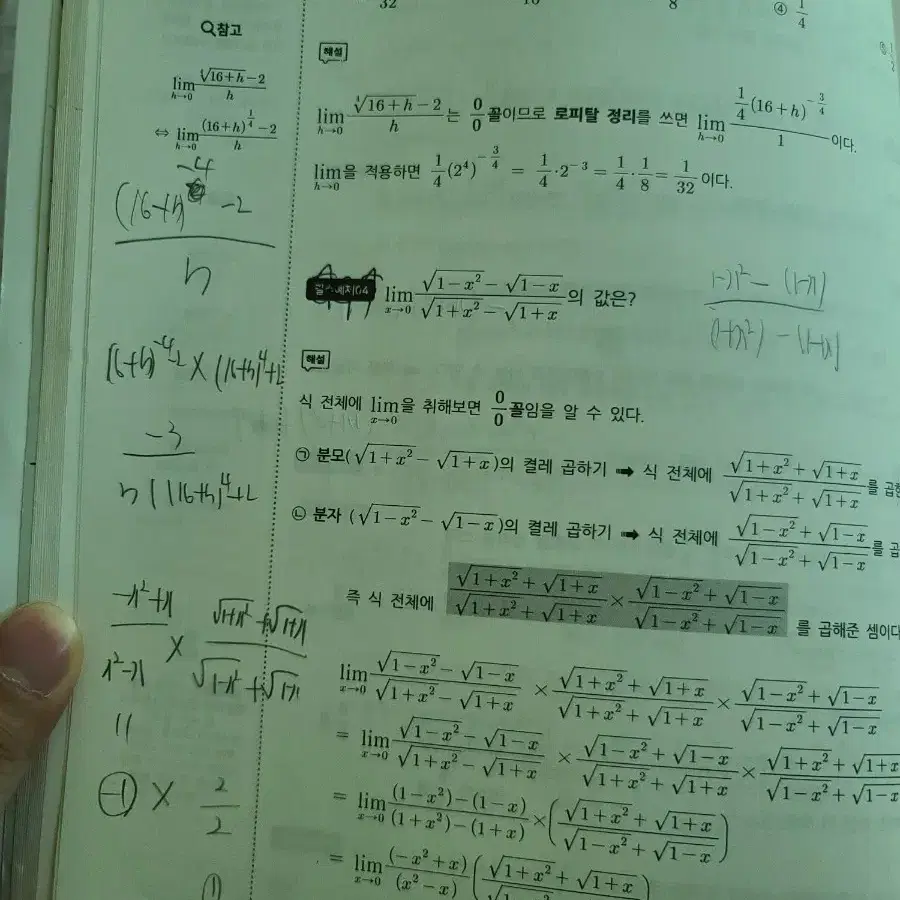 32 16 8 ④ 1/4
참고
lim_{h→0} (∜(16+h)−2)/h
⇔ lim_{h→0} ((16+h)^{1/4}−2)/h
해설
lim_{h→0} (∜(16+h)−2)/h 는 0/0 꼴이므로 로피탈 정리를 쓰면 lim_{h→0} (1/4(16+h)^{−3/4})/1 이다.
lim_{h→0}을 적용하면 1/4(2^4)^{−3/4} = 1/4·2^{−3} = 1/4·1/8 = 1/32 이다.
−4
(16+h) −2
h
lim_{x→0} (√(1−x²)−√(1−x))/(√(1+x²)−√(1+x)) 의 값은?
1−x² − (1−x)
(1+x²) − (1+x)
해설
식 전체에 lim_{x→0}을 취해보면 0/0 꼴임을 알 수 있다.
(16+h)^{−4}+2 × (16+h)^4+2
㉠ 분모(√(1+x²)−√(1+x))의 켤레 곱하기 ➡ 식 전체에 (√(1+x²)+√(1+x))/(√(1+x²)+√(1+x)) 를
−3
h((16+h)^4+2
㉡ 분자 (√(1−x²)−√(1−x))의 켤레 곱하기 ➡ 식 전체에 (√(1−x²)+√(1−x))/(√(1−x²)+√(1−x)) 를
즉 식 전체에 (√(1+x²)+√(1+x))/(√(1+x²)+√(1+x)) × (√(1−x²)+√(1−x))/(√(1−x²)+√(1−x)) 를 곱해준 셈이다
(−x²+x)/(x²−x) × (√(1+x²)+√(1+x))/(√(1−x²)+√(1−x))
lim_{x→0} (√(1−x²)−√(1−x))/(√(1+x²)−√(1+x)) × (√(1+x²)+√(1+x))/(√(1+x²)+√(1+x)) × (√(1−x²)+√(1−x))/(√(1−x²)+√(1−x))
= lim_{x→0} (√(1−x²)−√(1−x))/(√(1+x²)−√(1+x)) × (√(1−x²)+√(1−x))/(√(1+x²)+√(1+x)) × (√(1+x²)+√(1+x))/(√(1−x²)+√(1−x))
||
−1 × 2/2
= lim_{x→0} ((1−x²)−(1−x))/((1+x²)−(1+x)) × ((√(1+x²)+√(1+x))/(√(1−x²)+√(1−x)))
= lim_{x→0} (−x²+x)/(x²−x) ((√(1+x²)+√(1+x))